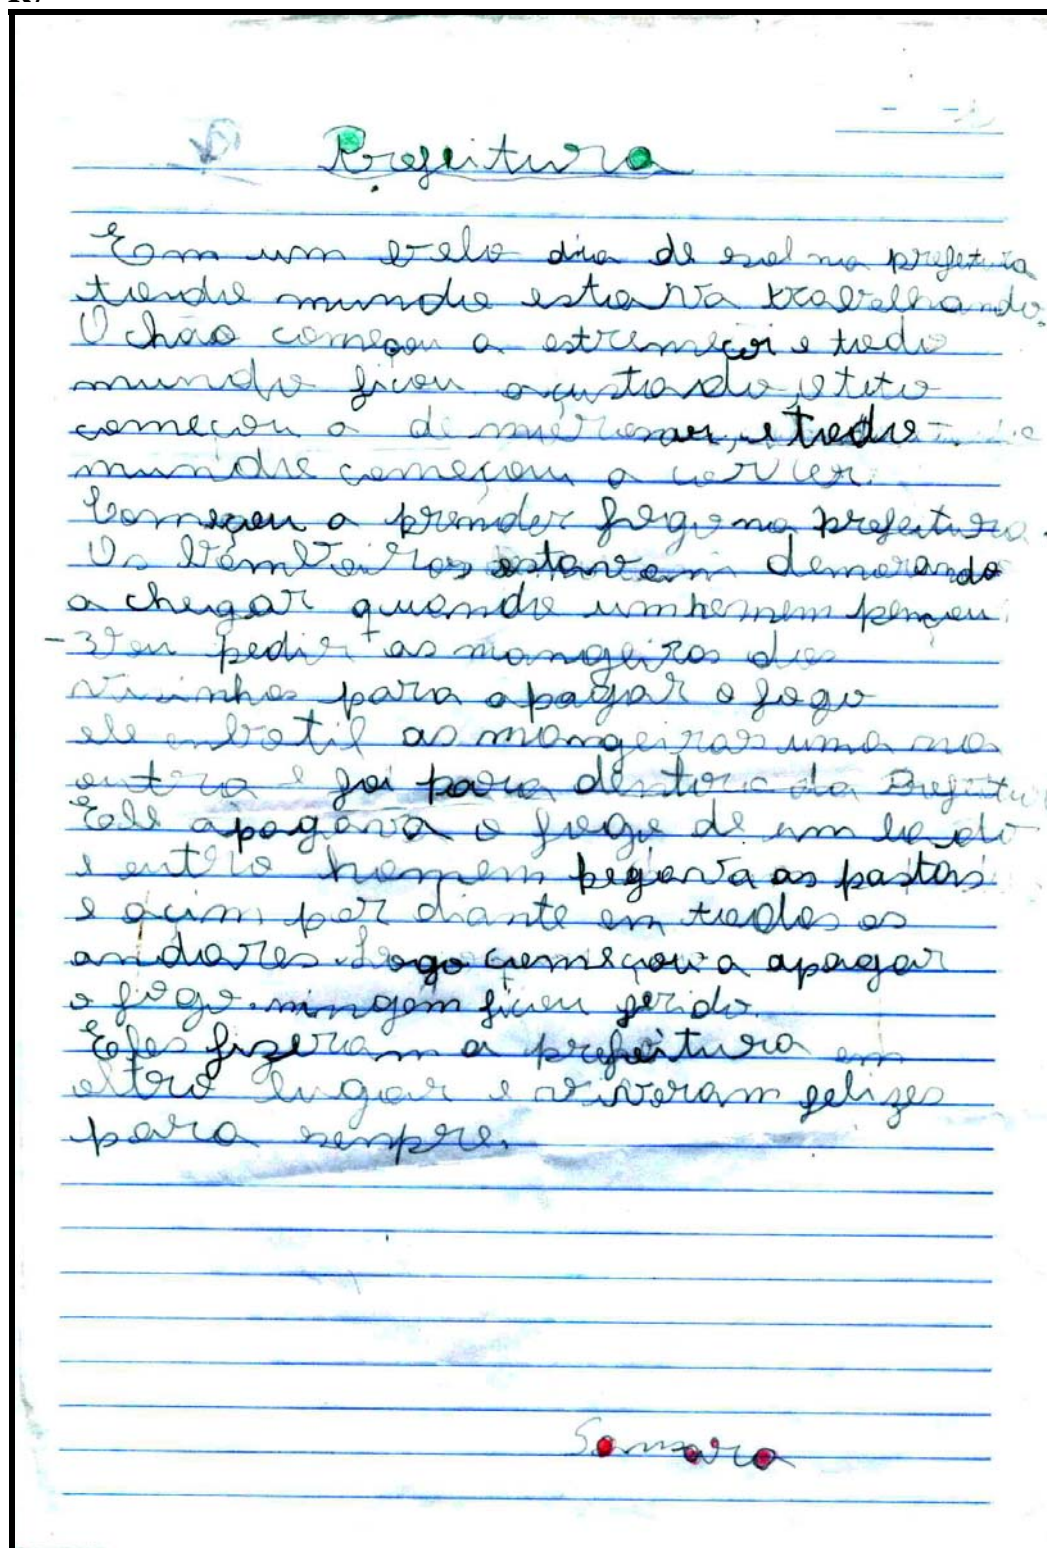 Prefeitura
Em um belo dia de sol na prefetura
todo mundo estava trabalhando.
O chão começou a estremecer e todo
mundo ficou açustando, o teto
começou a desmoronar, e todo
mundo começou a correr.
Começou a prender fogo na prefeitura.
Os bombeiros estavam demorando
a chegar quando um homem pençou
- Vou pedir as mangeiras dos
visinhos para apagar o fogo
ele enbotil as mangeiras uma na
outra e foi para dentoro da Prefeitu
Ele apagava o fogo de um lado
e outro homem pegava as pastas
e açim por diante em todos os
andares. Logo começou a apagar
o fogo. ningem ficou ferido.
Eles fizeram a prefeitura em
oltro lugar e viveram felizes
para senpre.
Samara